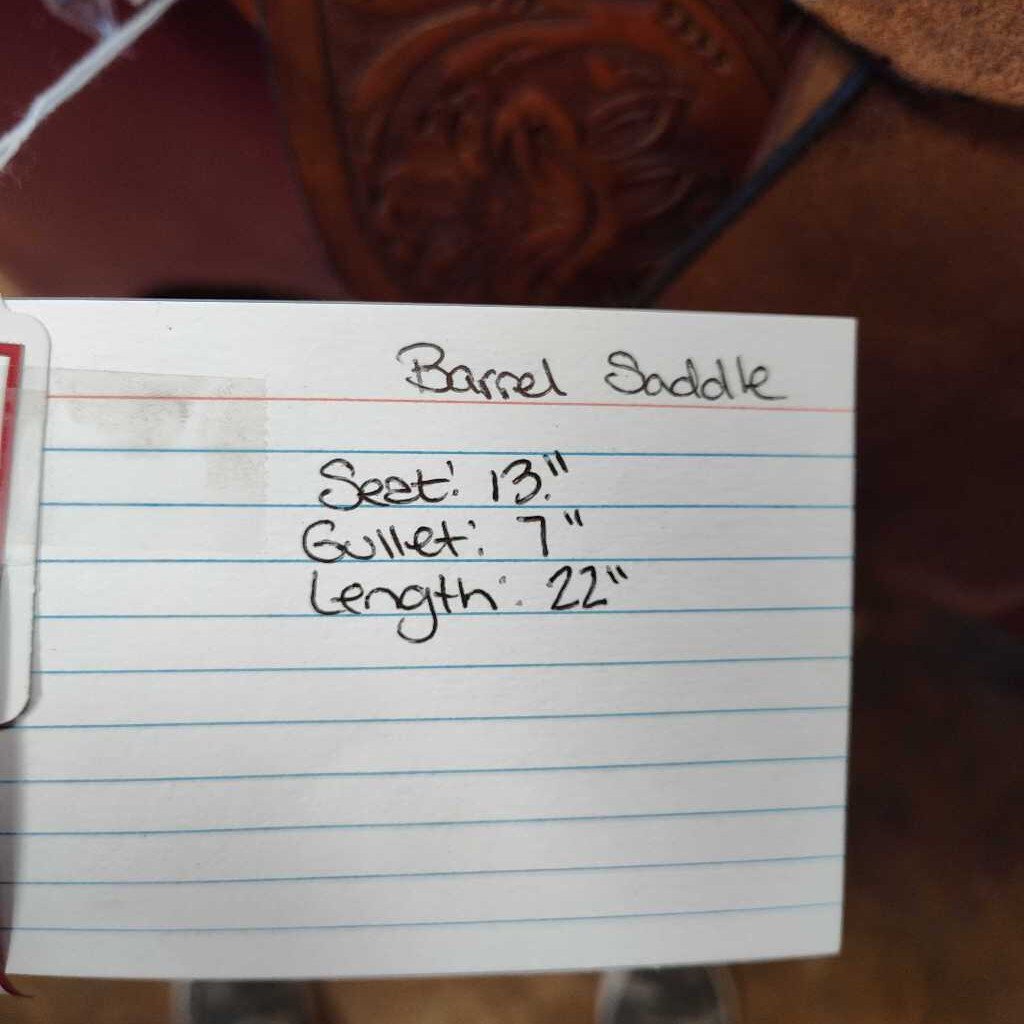 Barrel Saddle
Seat: 13"
Gullet: 7"
Length: 22"